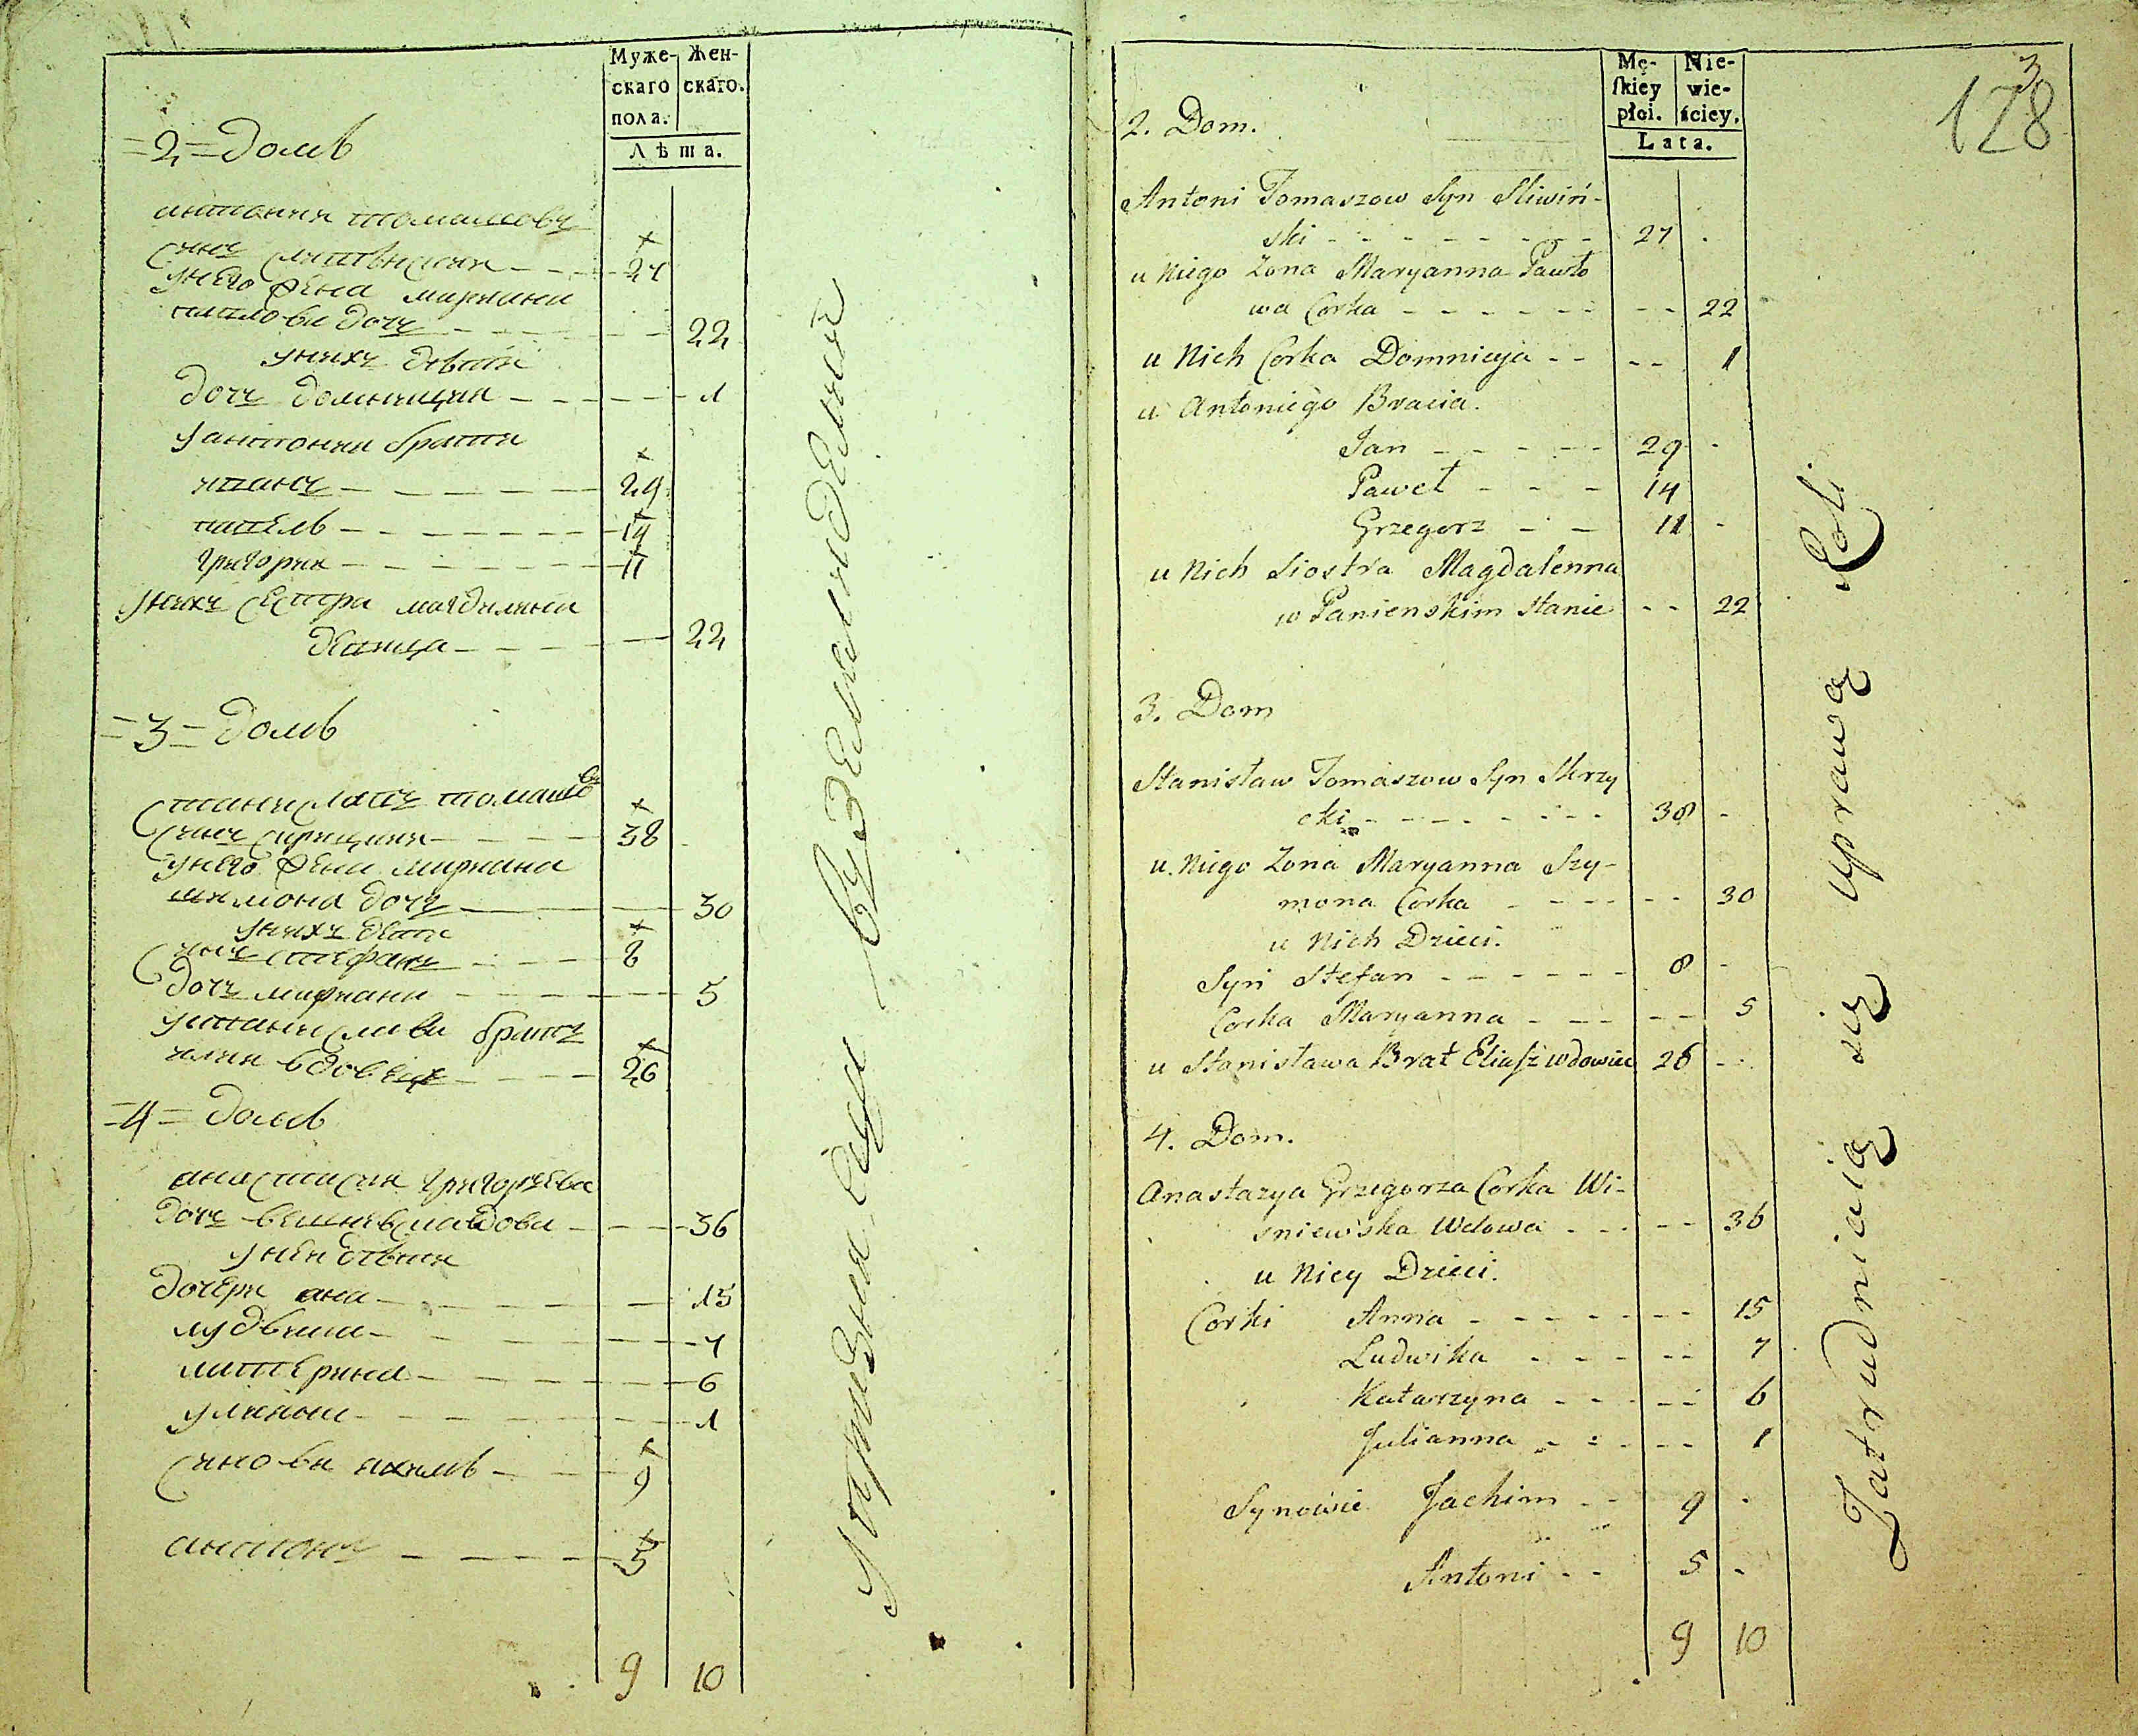 Муже- Жен-
скаго скаго.
пола.
Лѣта.
=2=домъ
антоний томашовъ
синъ сливинский - - - 27
унего жена мариана
павлова дочь - - - 22
унихъ дѣти
дочь доминиция - - - 1
уантония брати
иванъ - - - 29
павелъ - - - 14
григорий - - - 11
унихъ сестра магдалина
девица - - - 22
=3=домъ
станиславъ томашовъ
синъ скрицкий - - - 38
унего жена мариана
шимона дочь - - - 30
унихъ дети
синъ стефанъ - - - 8
дочь мариана - - - 5
устанислава братъ
илия вдовецъ - - - 26
=4=домъ
анастасия григорьева
дочь - - - 36
унея дѣтии
дочери ана - - - 15
лудвика - - - 7
катерина - - - 6
улияна - - - 1
синови якимъ - - - 9
антонъ - - - 5
9 10
Мę- Nie-
skiey wie-
płci. ściey.
Lata.
3
128
2. Dom.
Antoni Tomaszow Syn Sliwiń-
ski - - - 27
u Niego Zona Maryanna Pawło
wa Corka - - - 22
u Nich Corka Domnicyja - - - 1
u Antoniego Bracia.
Jan - - - 29
Paweł - - - 14
Grzegorz - - - 11
u Nich Siostra Magdalenna
w Panienskim stanie - - 22
3. Dom
Stanisław Tomaszow Syn Skrzy
cki - - - 38
u Niego Zona Maryanna Szy-
mona Corka - - - 30
u Nich Dzieci.
Syn Stefan - - - 8
Corka Maryanna - - - 5
u Stanisława Brat Eliasz wdowiec 26
4. Dom.
Anastazya Grzegorza Corka Wi-
sniewska Wdowa - - - 36
u Niey Dzieci.
Corki Anna - - - 15
Ludwika - - - 7
Katarzyna - - - 6
Julianna - - - 1
Synowie Jachim - - 9
Antoni - - 5
9 10
Zatrudniaią się uprawą Roli